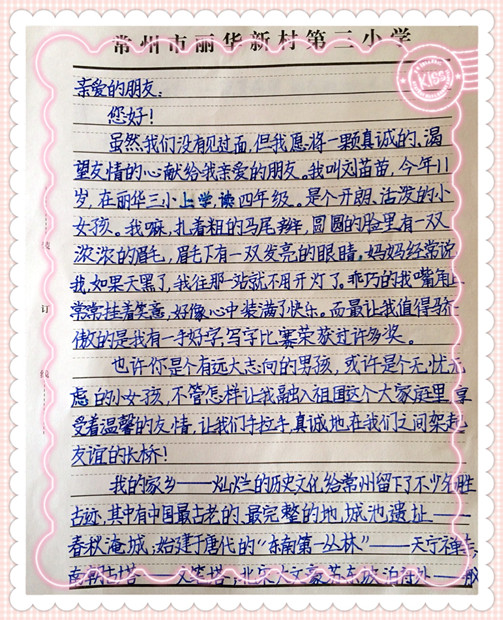 常州市丽华新村第三小学
KISS
亲爱的朋友：
您好！
虽然我们没有见过面，但我愿将一颗真诚的、渴
望友情的心献给我亲爱的朋友。我叫刘苗苗，今年11
岁，在丽华三小上学读四年级。是个开朗、活泼的小
女孩。我嘛，扎着粗的马尾辫，圆圆的脸里有一双
浓浓的眉毛，眉毛下有一双发亮的眼睛。妈妈经常说
我，如果天黑了，我往那一站就不用开灯了。乖巧的我嘴角上
常常挂着笑意，好像心中装满了快乐。而最让我值得骄
傲的是我有一手好字，写字比赛荣获过许多奖。
也许你是个有远大志向的男孩，或许是个无忧无
虑的小女孩，不管怎样让我融入祖国这个大家庭里，享
受着温馨的友情，让我们手拉手，真诚地在我们之间架起
友谊的长桥！
我的家乡——灿烂的历史文化，给常州留下了不少名胜
古迹，其中有中国最古老的、最完整的地城池遗址——
春秋淹城；始建于唐代的“东南第一丛林”——天宁禅寺；
南朝古塔——文笔塔；北宋大文豪苏东坡泊舟处——舣
订